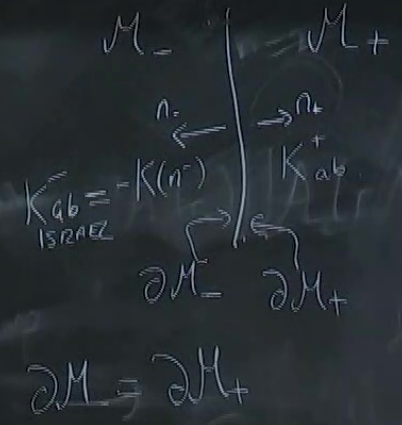 M₋ M₊
n₋ n₊
K⁻ab = -K(n⁻) K⁺ab
ISRAEL
∂M₋ ∂M₊
∂M₋ = ∂M₊